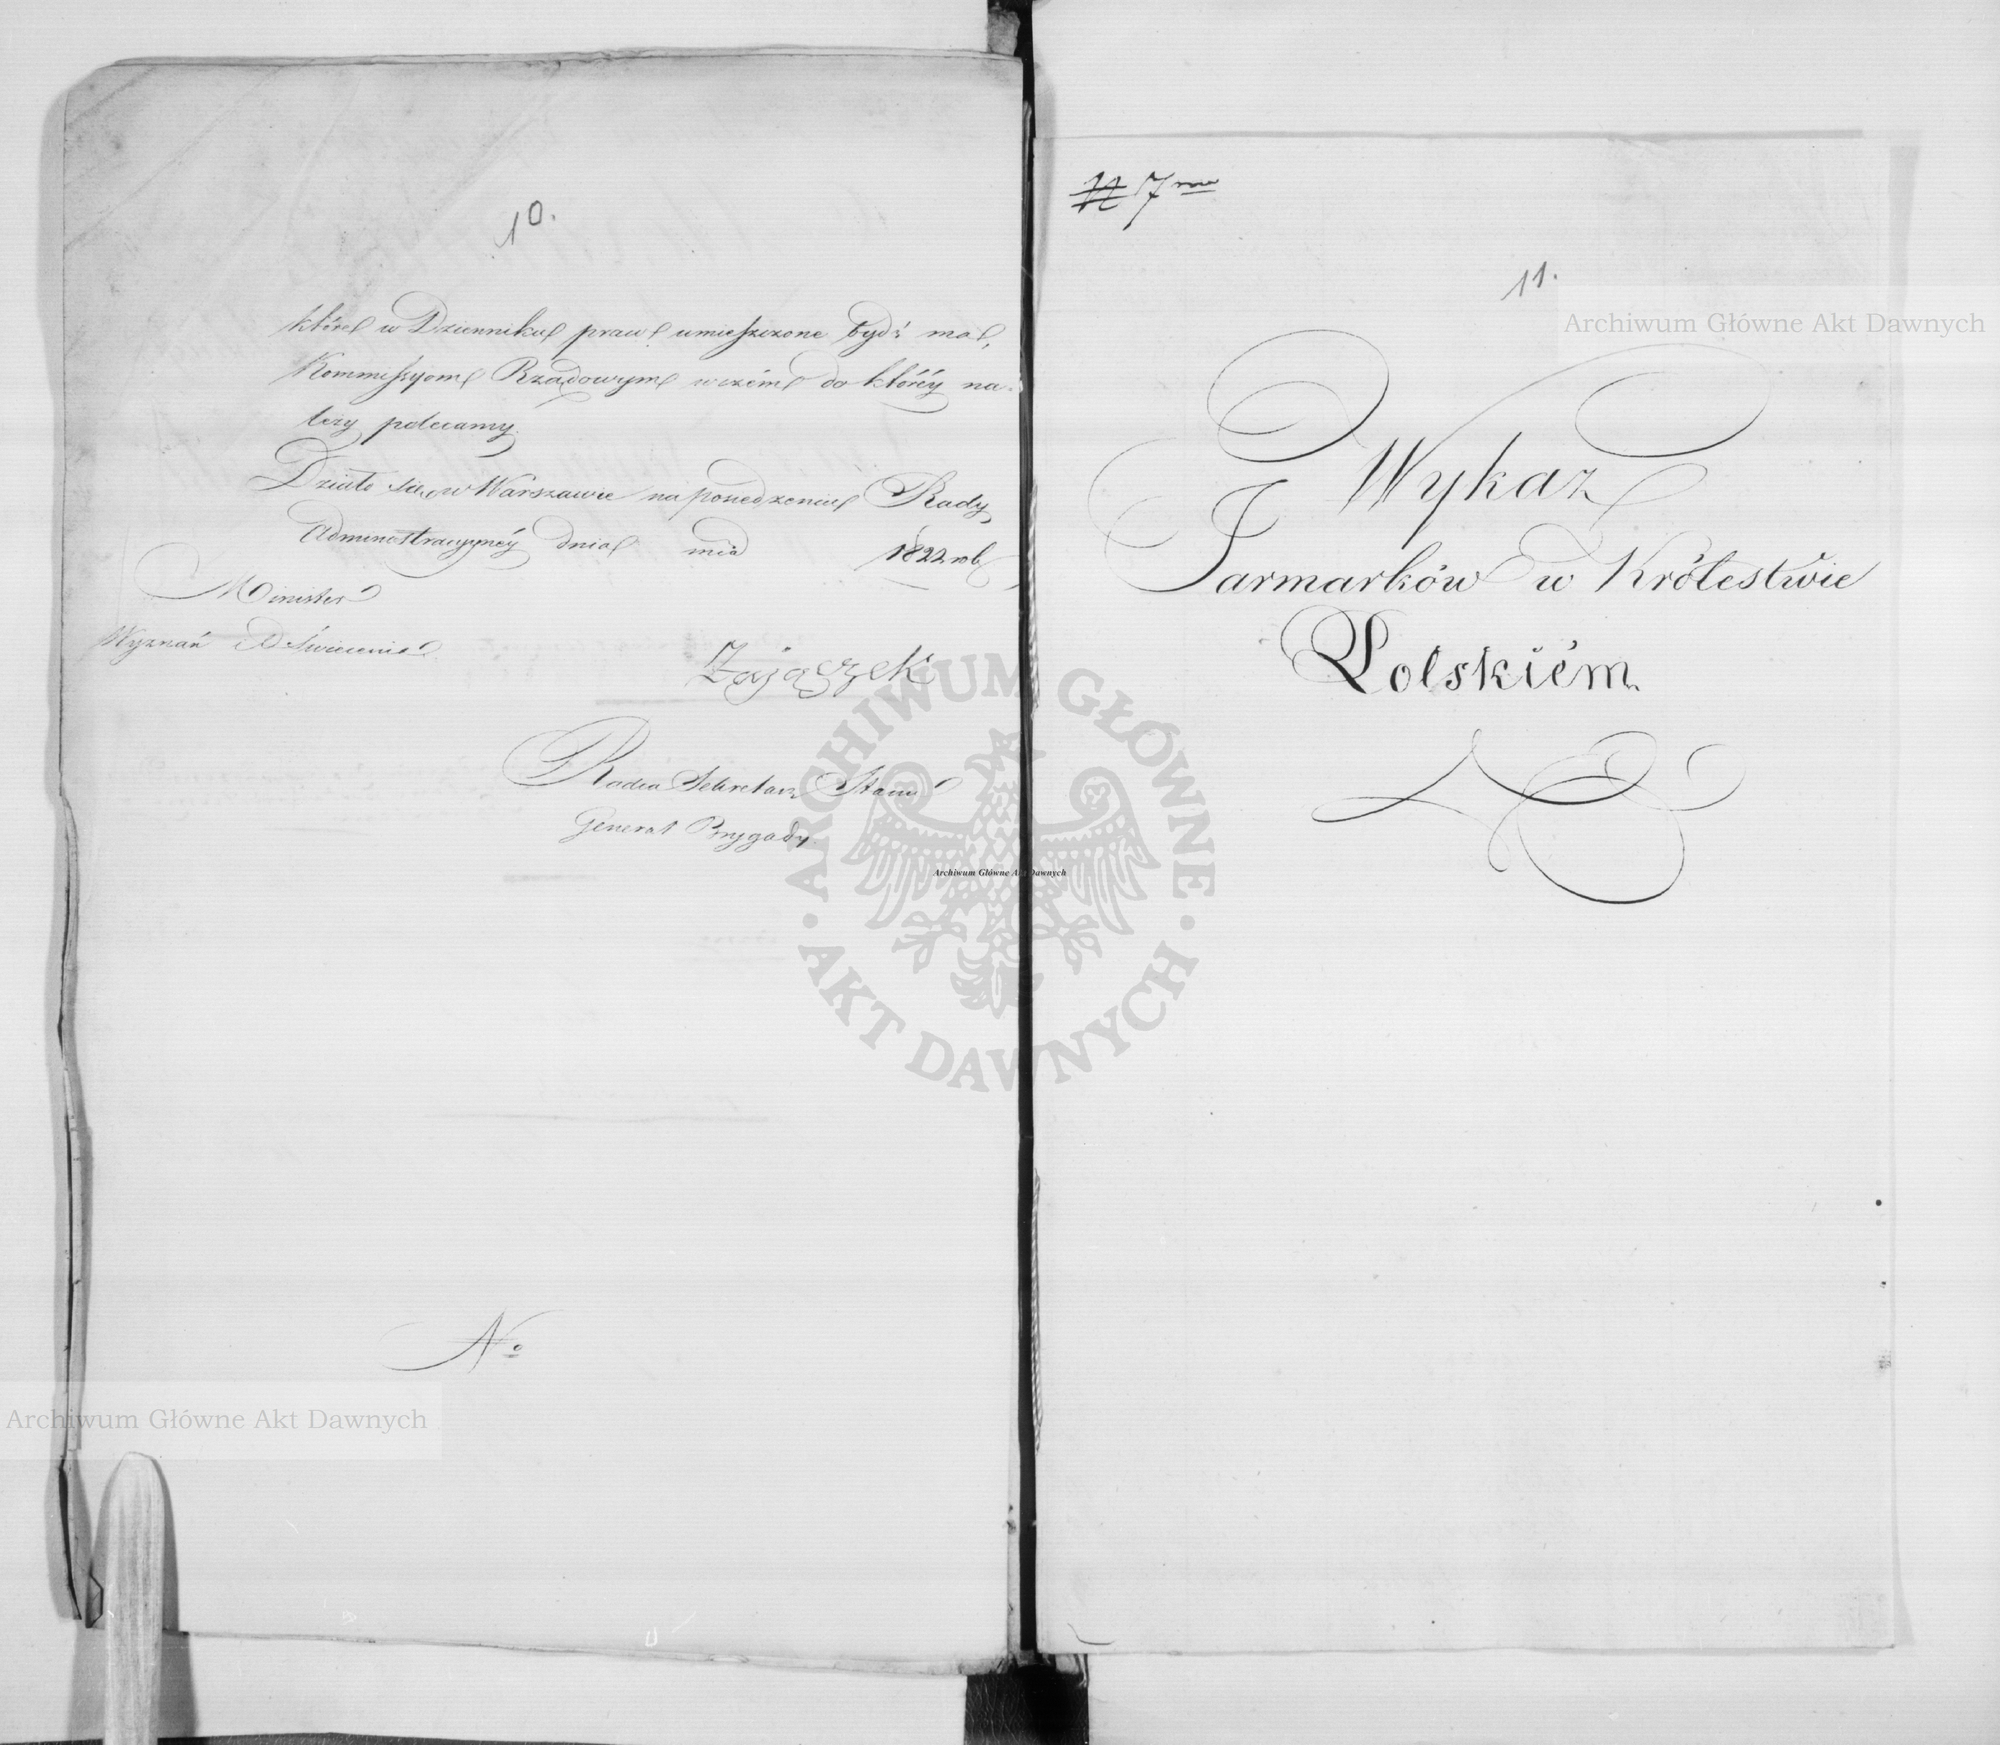 10.
które w Dzienniku praw umieszczone bydź ma,
Kommissyom Rządowym w czém do któréy na-
leży polecamy.
Działo się w Warszawie na posiedzeniu Rady
Administracyjnéy dnia mca 1822 rok
Minister
Wyznań i Oświecenia
Zajączek
Radca Sekretarz Stanu
Generał Brygady.
No
N 7mo
11.
Wykaz
Jarmarków w Królestwie
Polskiém
Archiwum Główne Akt Dawnych
ARCHIWUM GŁÓWNE
AKT DAWNYCH
Archiwum Główne Akt Dawnych
Archiwum Główne Akt Dawnych